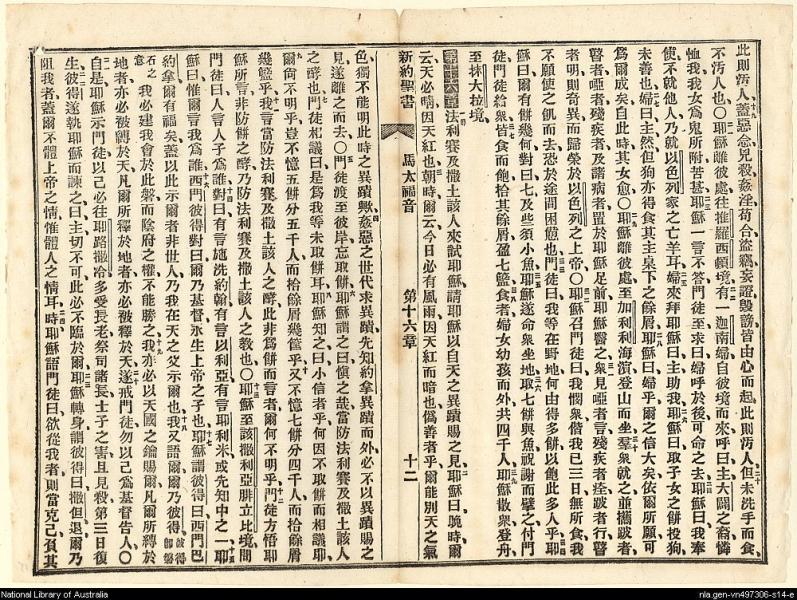 此則汚人、蓋惡念兇殺姦淫苟合盜竊妄證毀謗皆由心而起、此則汚人、但未洗手而食、
不汚人也〇耶穌離彼處、往推羅西頓境、有一迦南婦、自彼境而來、呼曰、主大闢之裔、憐
恤我、我女爲鬼所附苦甚、耶穌一言不答、門徒至求曰、婦呼於後、可命之去、耶穌曰、我奉
使不就他人、乃就以色列家之亡羊耳、婦來拜耶穌曰、主助我、耶穌曰、取子女之餅投狗、
未善也、婦曰、主然、但狗亦得食其主桌下之餘屑、耶穌曰、婦乎、爾之信大矣、依爾所願、可
爲爾成矣、自此時其女愈〇耶穌離彼處、至加利利海濱、登山而坐、羣衆就之、並攜跛者、
瞽者、啞者、殘疾者、及諸病者、置於耶穌足前、耶穌醫之、衆見啞者言、殘疾者痊、跛者行、瞽
者明、則奇異而歸榮於以色列之上帝〇耶穌召門徒曰、我憫衆、偕我已三日、無所食、我
不願使之飢而去、恐於途間困憊也、門徒曰、我等在野地、何由得多餅、以飽此多人乎、耶
穌曰、爾有餅幾何、對曰、七、及些須小魚、耶穌遂命衆坐地、取七餅與魚祝謝而擘之、付門
徒、門徒給衆、皆食而飽、拾其餘屑、盈七籃、食者婦女幼孩而外、共四千人、耶穌散衆登舟、
至抹大拉境、
第十六章 法利賽及撒土該人來試耶穌、請耶穌以自天之異蹟賜之見、耶穌曰、晚時爾
云、天必晴、因天紅也、朝時爾云、今日必有風雨、因天紅而暗也、僞善者乎、爾能別天之氣
新約聖書 馬太福音 第十六章 十二
色、獨不能明此時之異蹟歟、姦惡之世代求異蹟、先知約拿異蹟而外、必不以異蹟賜之
見、遂離之而去〇門徒渡至彼岸、忘取餅、耶穌謂之曰、愼之哉、當防法利賽及撒土該人
之酵也、門徒相議曰、是爲我等未取餅耳、耶穌知之曰、小信者乎、何因不取餅而相議耶、
爾尙不明乎、豈不憶五餅分五千人、而拾餘屑幾筐乎、又不憶七餅分四千人、而拾餘屑
幾籃乎、我言當防法利賽及撒土該人之酵、此非爲餅而言者、爾何不明乎、門徒方悟耶
穌所言、非防餅之酵、乃防法利賽及撒土該人之敎也〇耶穌至該撒利亞腓立比境、問
門徒曰、人言人子爲誰、對曰、有言施洗約翰、有言以利亞、有言耶利米、或先知中之一、耶
穌曰、惟爾言我爲誰、西門彼得對曰、爾乃基督、永生上帝之子也、耶穌謂彼得曰、西門巴
約拿、爾有福矣、蓋以此示爾者、非世人、乃我在天之父示爾也、我又語爾、爾乃彼得、彼得卽磐
石之意 我必建我會於此磐、而陰府之權、不能勝之、我亦必以天國之鑰賜爾、凡爾所縛於
地者、亦必被縛於天、凡爾所釋於地者、亦必被釋於天、遂戒門徒、勿以己爲基督告人〇
自是耶穌示門徒、以己必往耶路撒冷、多受長老祭司諸長士子之害、且見殺、第三日復
生、彼得遂執耶穌而諫之曰、主切不可、此必不臨於爾、耶穌轉身謂彼得曰、撒但退、爾乃
阻我者、蓋爾不體上帝之情、惟體人之情耳、時耶穌語門徒曰、欲從我者、則當克己、負其
National Library of Australia
nla.gen-vn497306-s14-e